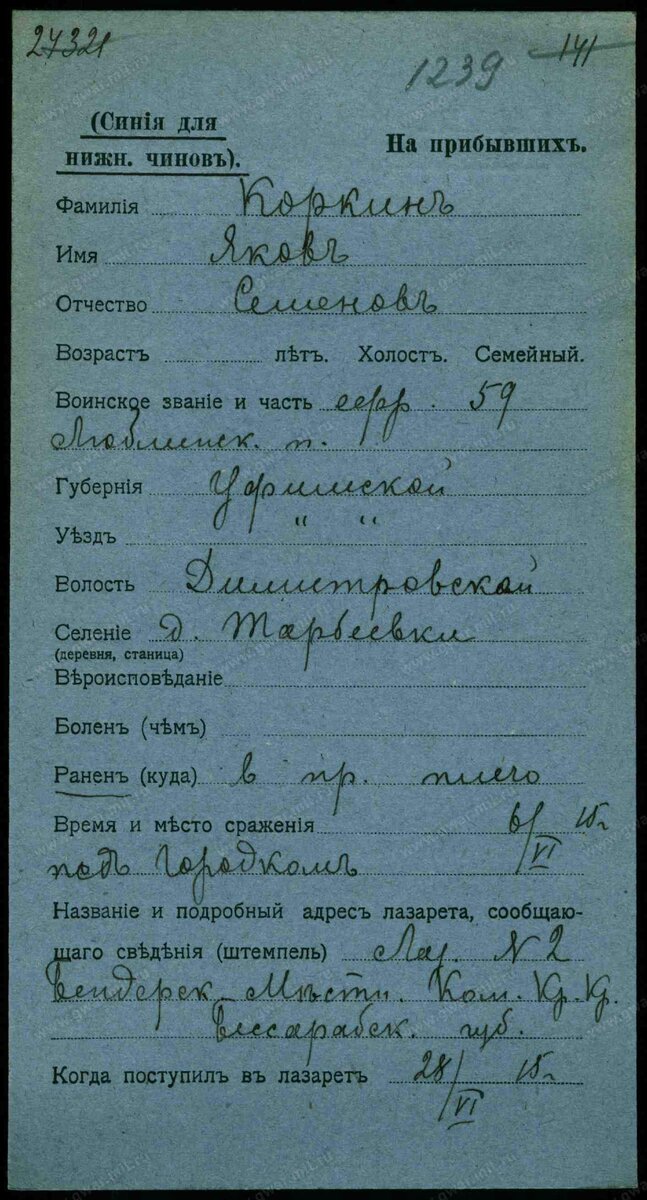 27321
1239 141
(Синія для
нижн. чиновъ).
На прибывшихъ.
Фамилія Коркинъ
Имя Яковъ
Отчество Семеновъ
Возрастъ лѣтъ. Холостъ. Семейный.
Воинское званіе и часть ефр. 59
Люблинск. п.
Губернія Уфимской
Уѣздъ " "
Волость Димитровской
Селеніе д. Тарбеевки
(деревня, станица)
Вѣроисповѣданіе
Боленъ (чѣмъ)
Раненъ (куда) в пр. плечо
Время и мѣсто сраженія 6/VI 15 г.
подъ Городкомъ
Названіе и подробный адресъ лазарета, сообщаю-
щаго свѣдѣнія (штемпель) Лаз. N 2
Бендерск. Мѣстн. Ком. Кр. Кр.
Бессарабск. губ.
Когда поступилъ въ лазаретъ 28/VI 15 г.